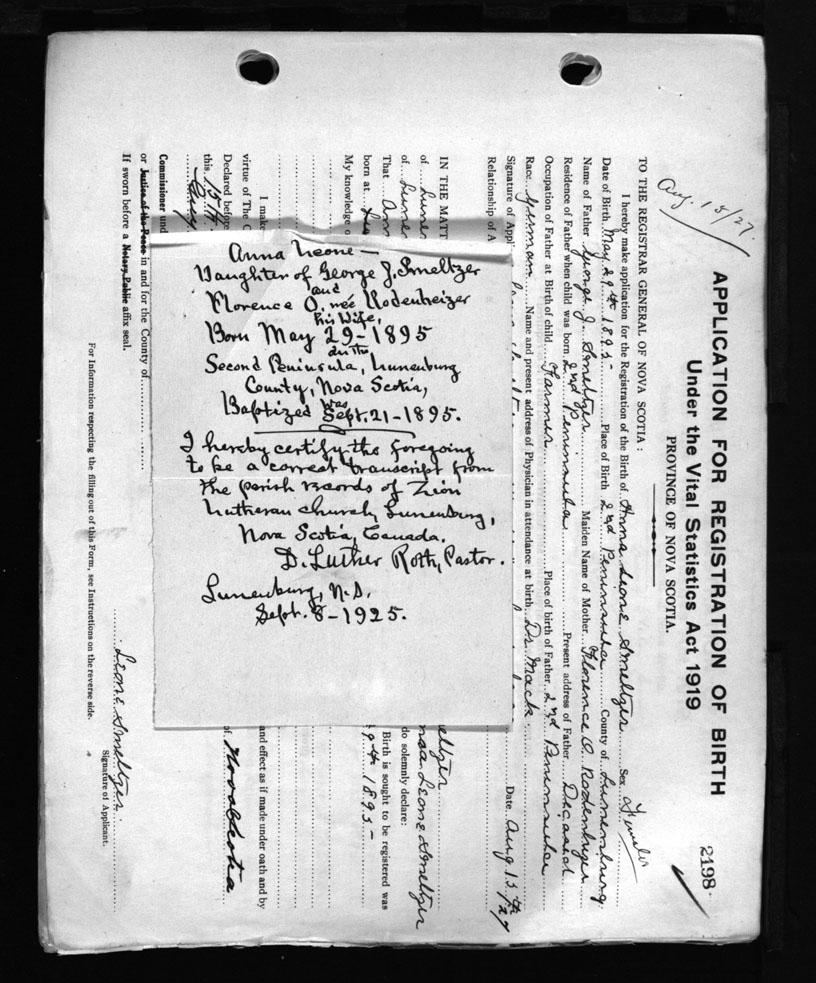 Aug. 15/27.
APPLICATION FOR REGISTRATION OF BIRTH
Under the Vital Statistics Act 1919
PROVINCE OF NOVA SCOTIA.
2198.
TO THE REGISTRAR GENERAL OF NOVA SCOTIA:
I hereby make application for the Registration of the Birth of Anna Leone Smeltzer Sex Female
Date of Birth May 29th 1895- Place of Birth 2nd Peninsula County of Lunenburg
Name of Father George J. Smeltzer Maiden Name of Mother Florence O Rodenhizer
Residence of Father when child was born 2nd Peninsula Present address of Father Deceased
Occupation of Father at Birth of child Farmer Place of birth of Father 2nd Peninsula
Race German Name and present address of Physician in attendance at birth Dr. Mack
Signature of Appli Date Aug 15th/27
Relationship of A
IN THE MATT
of Lunen
of Lunen meltzer
That Ann nna Leone Smeltzer
do solemnly declare:
born at Birth is sought to be registered was
My knowledge o 9th 1895-
I make and effect as if made under oath and by
virtue of The C
Declared before of Nova Scotia
this 15th
Aug
Commissioner und
or Justice of the Peace in and for the County of
If sworn before a Notary Public affix seal.
Leone Smeltzer
Signature of Applicant.
For Information respecting the filling out of this Form, see Instructions on the reverse side.
Anna Leone —
Daughter of George J. Smeltzer
and
Florence O. née Rodenheizer
his Wife,
Born May 29-1895
in the
Second Peninsula, Lunenburg
County, Nova Scotia,
was
Baptized Sept. 21-1895.
I hereby certify the foregoing
to be a correct transcript from
the parish records of Zion
Lutheran church, Lunenburg,
Nova Scotia, Canada.
D. Luther Roth, Pastor.
Lunenburg, N.S.
Sept. 8-1925.